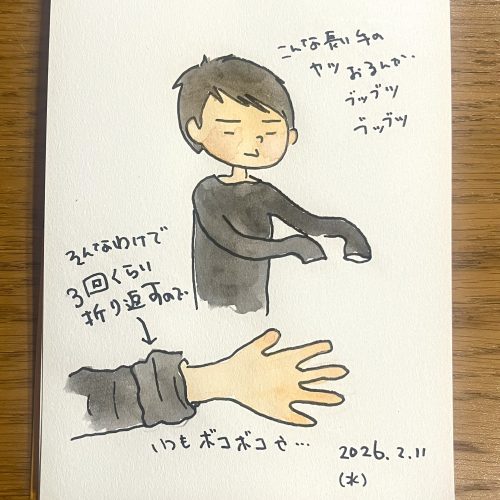 こんな長い手の
ヤツ おるんか、
ブツブツ
ブツブツ
そんなわけで
3回くらい
折り返すので
いつも ボコボコや…
2026.2.11
(水)